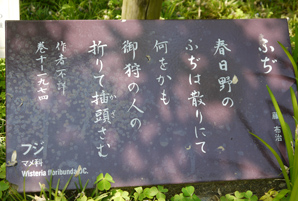 ふぢ
藤
布治
春日野の
ふぢは散りにて
何をかも
御狩の人の
折りて插頭さむ
かざ
作者不詳
巻十-一九七四
フジ
マメ科
Wisteria floribunda DC.